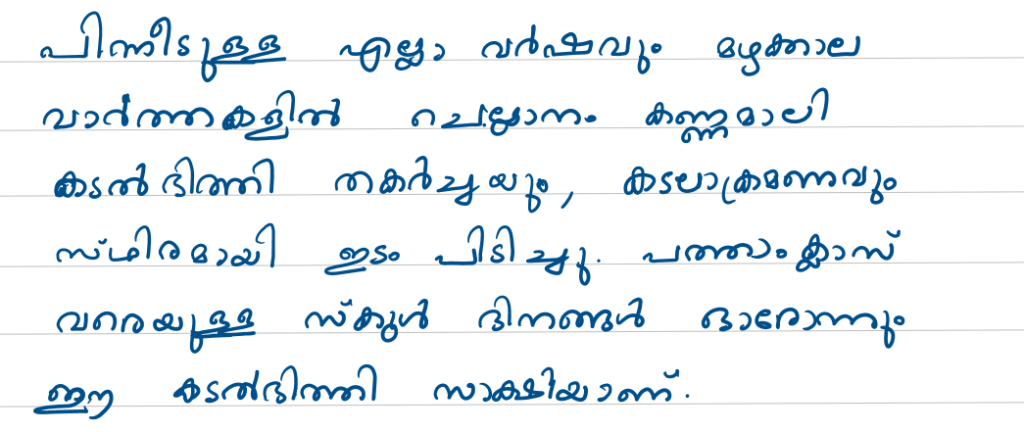 പിന്നീടുള്ള എല്ലാ വർഷവും മഴക്കാല
വാർത്തകളിൽ ചെല്ലാനം കണ്ണമാലി
കടൽ ഭിത്തി തകർച്ചയും, കടലാക്രമണവും
സ്ഥിരമായി ഇടം പിടിച്ചു. പത്താം ക്ലാസ്
വരെയുള്ള സ്കൂൾ ദിനങ്ങൾ ഓരോന്നും
ഈ കടൽഭിത്തി സാക്ഷിയാണ്.